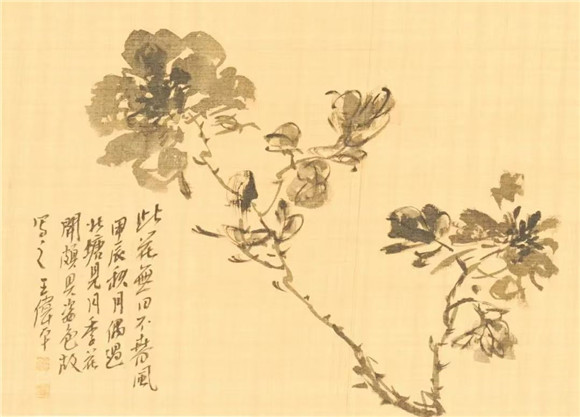 此花無日不春風
甲辰秋月偶過
北塘見月季花
開頗具姿色故
寫之 王偉平